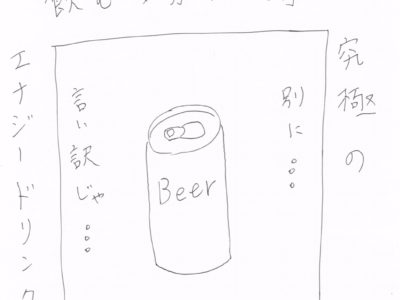 究極の
別に...
Beer
言い訳じゃ...
エナジードリンク